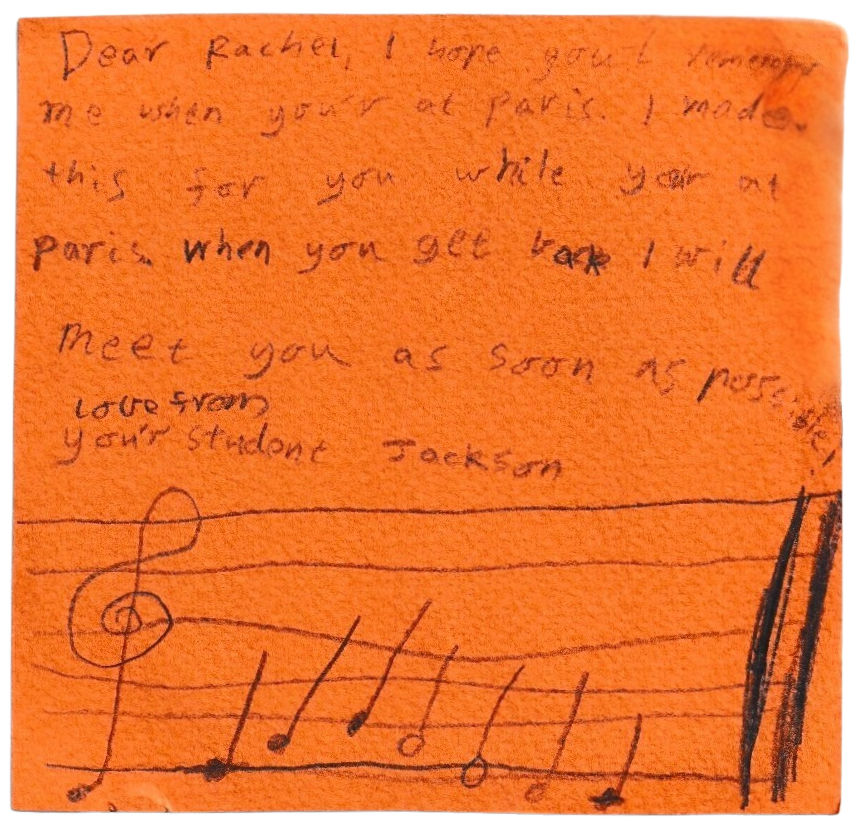 Dear Rachel, I hope you'l remember
me when you'r at paris. I made
this for you while your at
paris. when you get back I will
meet you as soon as possible!
love from
you'r student Jackson